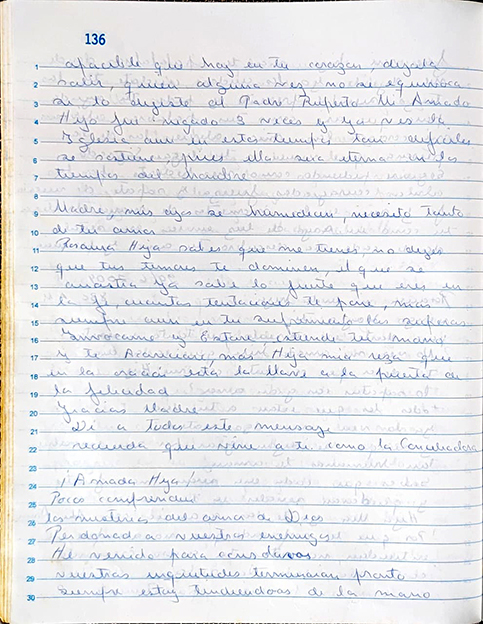 136
1 apacible que hay en tu corazón, dejala
2 salir, quien alguna vez no se equivoca
3 Se lo dijiste al Padre Ruperto Mi Amado
4 Hijo fue negado 3 veces y ya ves la
5 Iglesia aun en estos tiempos tan dificiles
6 se sostiene, pues Ella sera eterna en los
7 tiempos del hombre
8
9 Madre, mis ojos se humedecen, necesito tanto
10 de tu amor
11 Rosaura Hija sabes que me tienes, no dejes
12 que tus temores te dominen, el que se
13 ya sabe lo fuerte que eres en
14 la fe, cuantas tentaciones te pone, mas
15 siempre aun en tu sufrimiento las superas
16 Invocame y Estare extiende tu mano
17 y te Acariciare, más Hija mia reza que
18 en la oración está la llave de la puerta de
19 la felicidad
20 Gracias Madre
21 Di a todos este mensaje
22 recuerda que vine a ti como la Conciliadora
23
24 ¡Amada Hija!
25 Pocos comprenden
26 los misterios del amor de Dios
27 Perdonad a vuestros enemigos
28 He venido para consolaros
29 vuestras inquietudes terminaran pronto
30 siempre estoy teniendoos de la mano